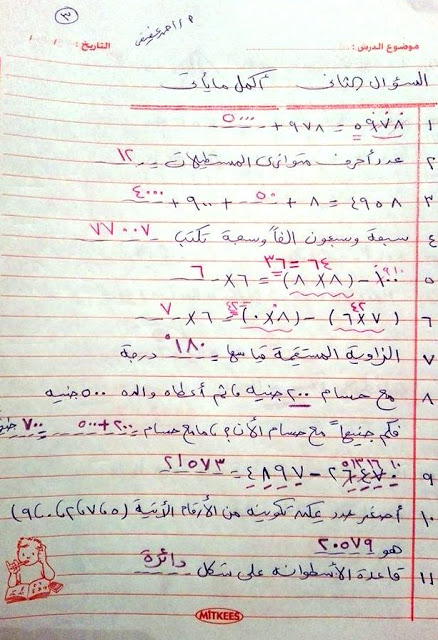 ٣
م / احمد عفيفى
موضوع الدرس : التاريخ : / /
السؤال الثانى أكمل ما يأتى
١ ٥٩٧٨ = ٩٧٨ + ٥٠٠٠
٢ عدد أحرف متوازى المستطيلات = ١٢
٣ ٤٩٥٨ = ٨ + ٥٠ + ٩٠٠ + ٤٠٠٠
٤ سبعة وسبعون الفاً وسبعة تكتب ٧٧٠٠٧
٦٤ = ٣٦
٥ ١٠٠ − (٨ × ٨) = ٦ × ٦
٤٢ ٤٢
٦ (٧ × ٦) − (٨ × ٠) = ٦ × ٧
٧ الزاوية المستقيمة قياسها ١٨٠° درجة
٨ مع حسام ٢٠٠ جنيه ثم أعطاه والده ٥٠٠ جنيه
فكم جنيهاً مع حسام الأن ؟ ما مع حسام = ٢٠٠ + ٥٠٠ = ٧٠٠ جنيه
٩ ٢٦٤٧٠ − ٤٨٩٧ = ٢١٥٧٣
١٠ أصغر عدد يمكن تكوينه من الأرقام الأتية (٥،٧،٢،٠،٩)
هو ٢٠٥٧٩
١١ قاعدة الأسطوانة على شكل دائرة
MITKEES